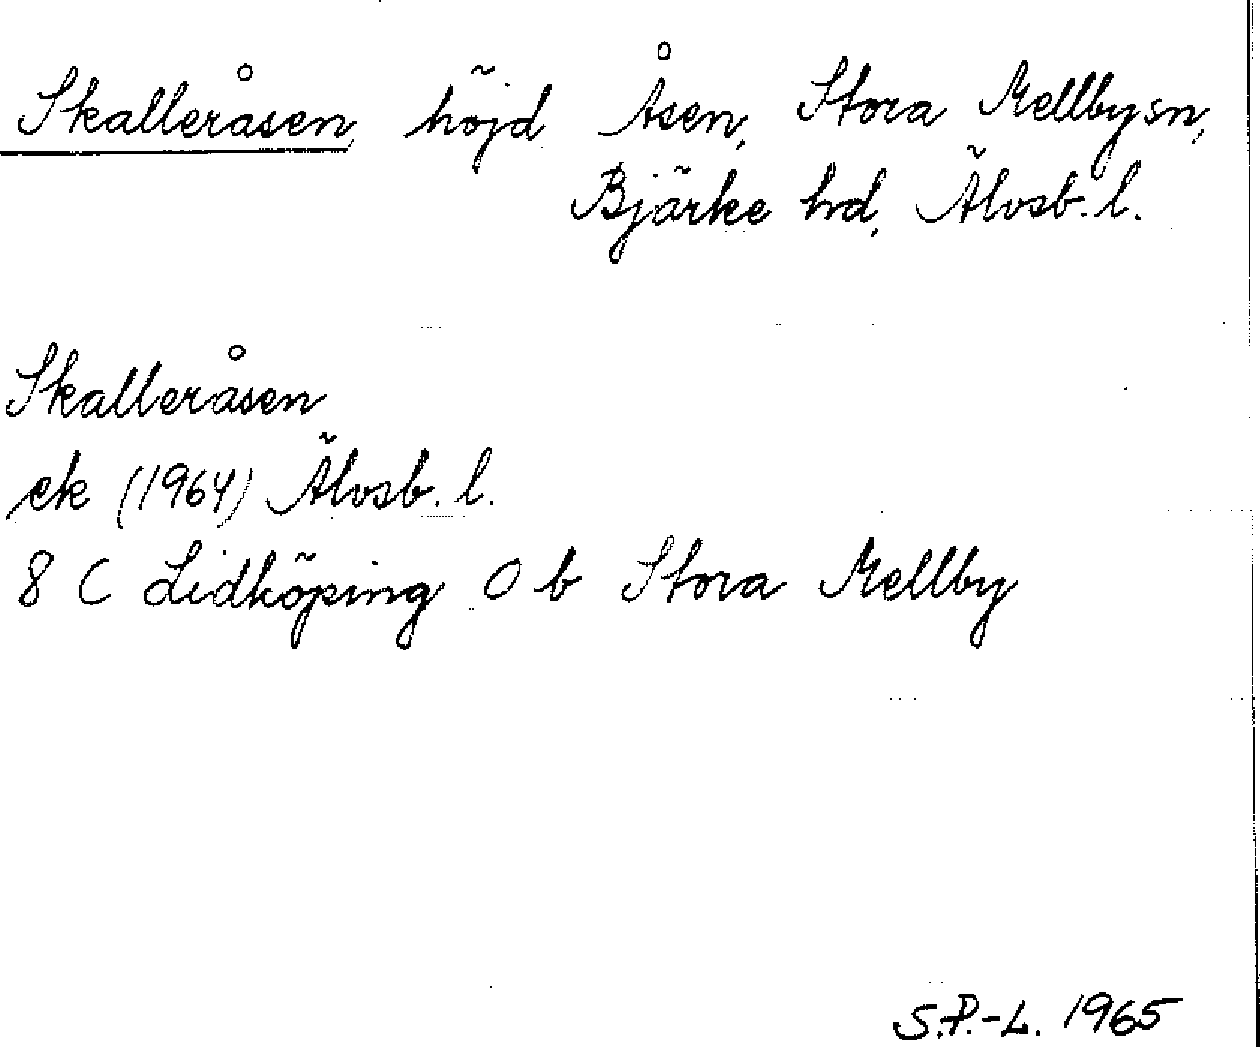 Skalleråsen, höjd Åsen, Stora Mellby sn,
Bjärke hd, Älvsb. l.
Skalleråsen
ek (1964) Älvsb. l.
8 C Lidköping O b Stora Mellby
S.P.-L. 1965